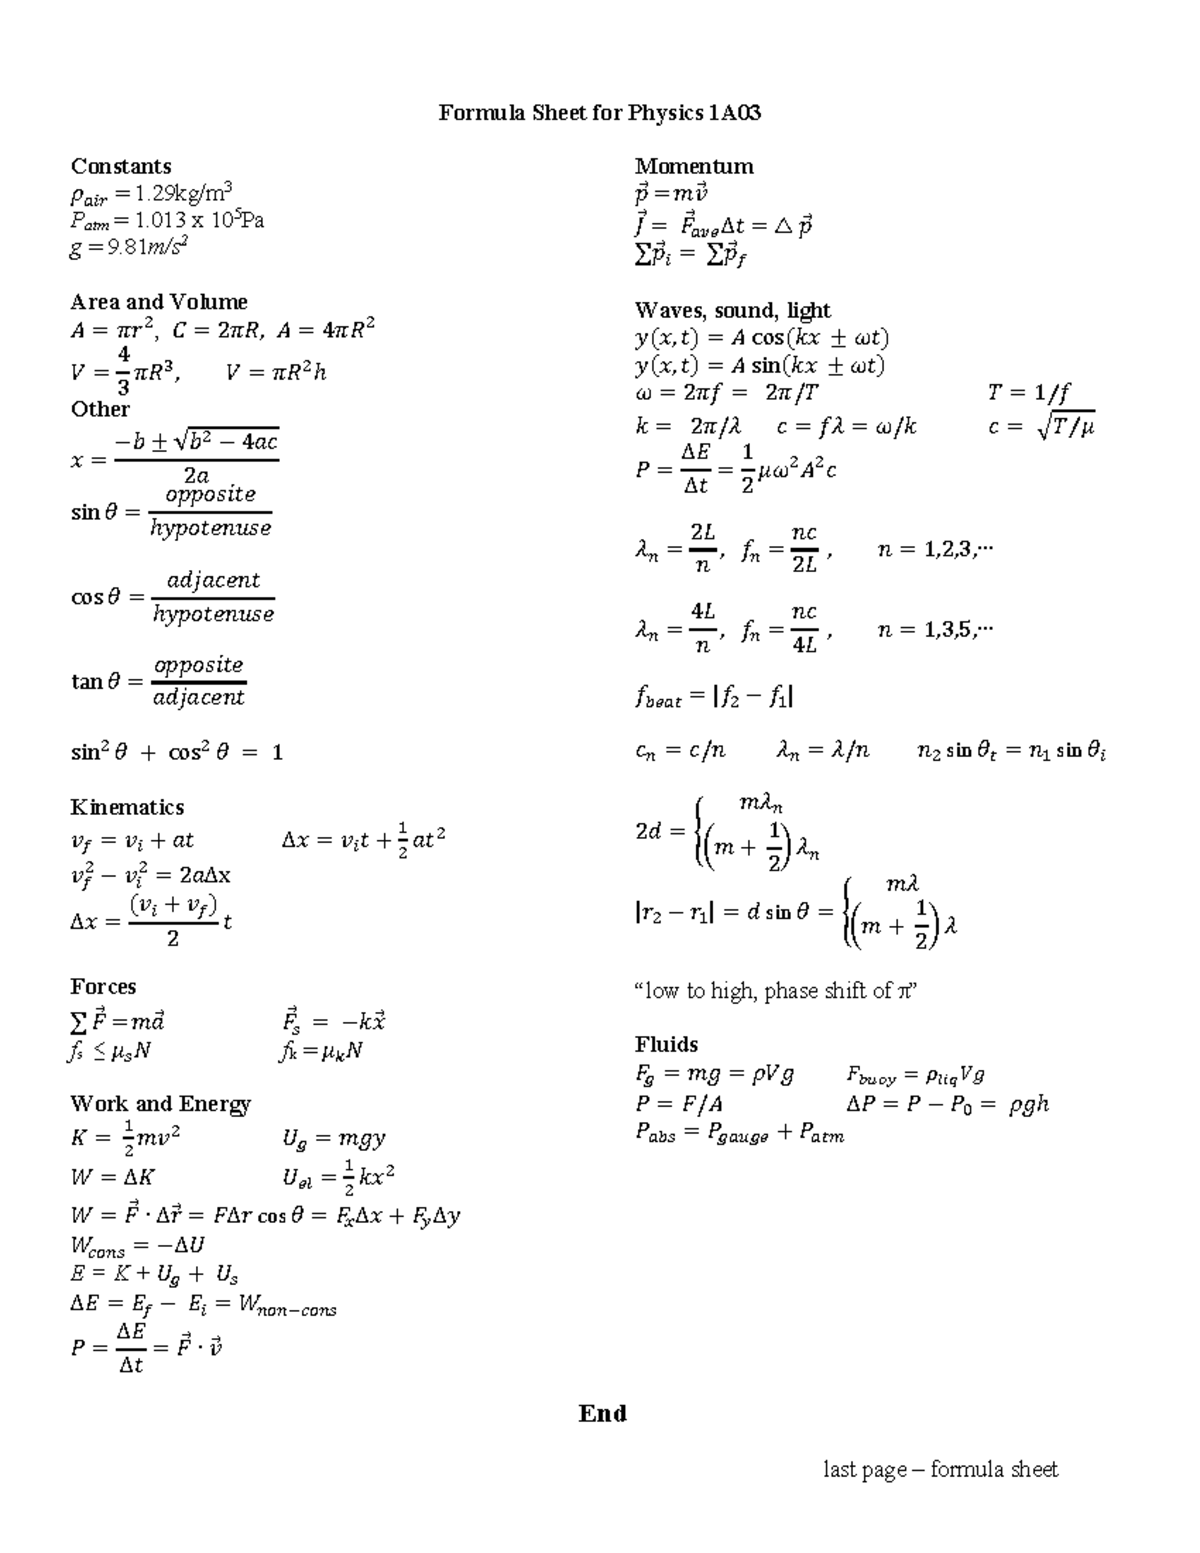 Formula Sheet for Physics 1A03
Constants
ρ_air = 1.29kg/m³
P_atm = 1.013 x 10⁵Pa
g = 9.81m/s²
Area and Volume
A = πr², C = 2πR, A = 4πR²
V = 4/3 πR³, V = πR²h
Other
x = (−b ± √(b² − 4ac))/2a
sin θ = opposite/hypotenuse
cos θ = adjacent/hypotenuse
tan θ = opposite/adjacent
sin² θ + cos² θ = 1
Kinematics
v_f = v_i + at Δx = v_i t + ½ at²
v_f² − v_i² = 2aΔx
Δx = (v_i + v_f)/2 t
Forces
∑ F⃗ = ma⃗ F⃗_s = −kx⃗
f_s ≤ μ_s N f_k = μ_k N
Work and Energy
K = ½ mv² U_g = mgy
W = ΔK U_el = ½ kx²
W = F⃗ · Δr⃗ = FΔr cos θ = F_xΔx + F_yΔy
W_cons = −ΔU
E = K + U_g + U_s
ΔE = E_f − E_i = W_non−cons
P = ΔE/Δt = F⃗ · v⃗
Momentum
p⃗ = mv⃗
J⃗ = F⃗_ave Δt = △ p⃗
∑p⃗_i = ∑p⃗_f
Waves, sound, light
y(x, t) = A cos(kx ± ωt)
y(x, t) = A sin(kx ± ωt)
ω = 2πf = 2π/T T = 1/f
k = 2π/λ c = fλ = ω/k c = √(T/μ)
P = ΔE/Δt = 1/2 μω²A²c
λ_n = 2L/n , f_n = nc/2L , n = 1,2,3,⋯
λ_n = 4L/n , f_n = nc/4L , n = 1,3,5,⋯
f_beat = |f₂ − f₁|
c_n = c/n λ_n = λ/n n₂ sin θ_t = n₁ sin θ_i
2d = { mλ_n
(m + 1/2) λ_n
|r₂ − r₁| = d sin θ = { mλ
(m + 1/2) λ
“low to high, phase shift of π”
Fluids
F_g = mg = ρVg F_buoy = ρ_liq Vg
P = F/A ΔP = P − P₀ = ρgh
P_abs = P_gauge + P_atm
End
last page – formula sheet